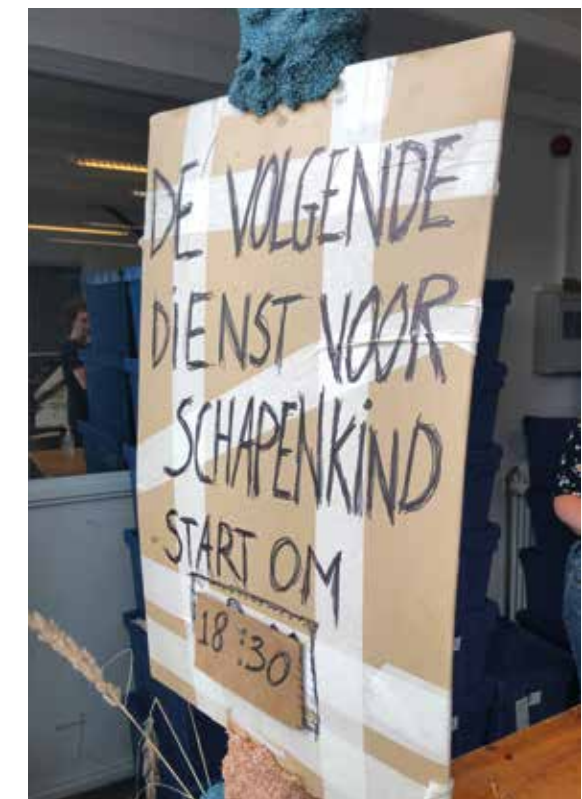 DE VOLGENDE
DiENST VOOR
SCHAPENKiND
START OM
18:30